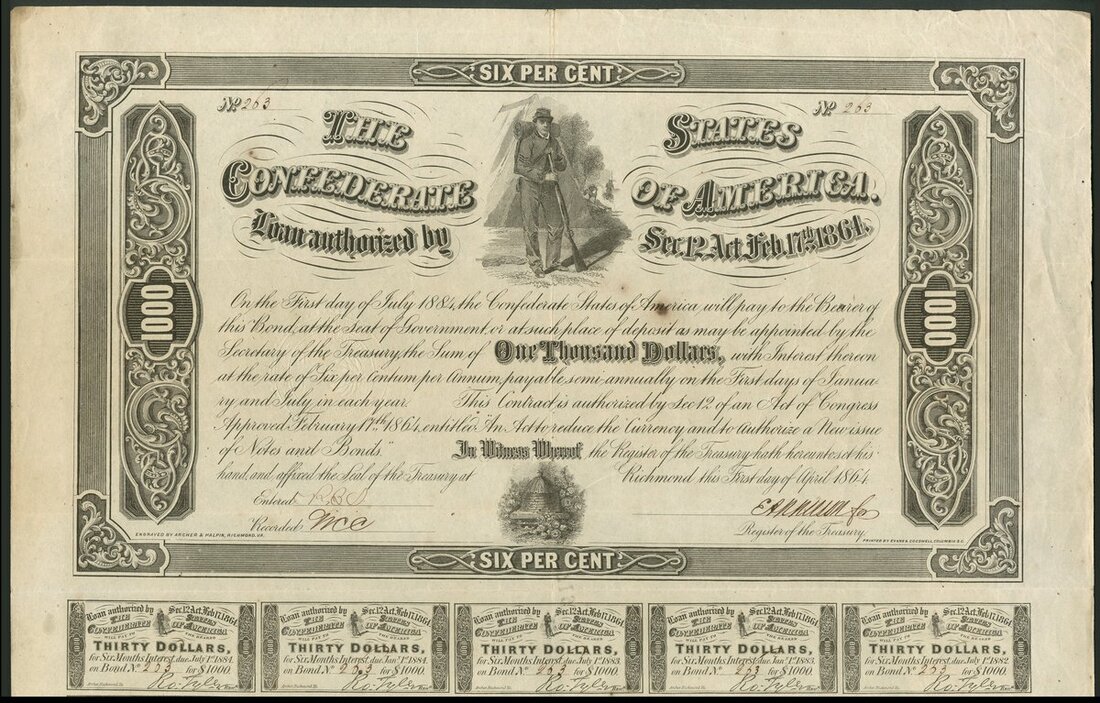 SIX PER CENT.
No 263
No 263
THE STATES
CONFEDERATE OF AMERICA.
Loan authorized by Sec. 12 Act Feb. 17th 1864.
1000
1000
On the First day of July 1884, the Confederate States of America will pay to the Bearer of
this Bond, at the Seat of Government, or at such place of deposit as may be appointed by the
Secretary of the Treasury, the Sum of One Thousand Dollars, with Interest thereon
at the rate of Six per Centum per Annum, payable semi-annually on the First days of Janua-
ry and July in each year. This Contract is authorized by Sec 12 of an Act of Congress
Approved February 17th 1864, entitled "An Act to reduce the Currency and to authorize a New issue
of Notes and Bonds." In Witness Whereof the Register of the Treasury hath hereunto set his
hand, and affixed the Seal of the Treasury at Richmond this First day of April 1864.
Entered
Recorded
Register of the Treasury.
ENGRAVED BY ARCHER & HALPIN, RICHMOND, VA.
PRINTED BY EVANS & COGSWELL, COLUMBIA S.C.
SIX PER CENT.
Loan authorized by Sec. 12 Act, Feb. 17, 1864
THE STATES
CONFEDERATE OF AMERICA
WILL PAY TO THE BEARER
THIRTY DOLLARS,
for Six Months Interest, due July 1st 1884.
on Bond No 263 for $1000.
Ro. Tyler
Loan authorized by Sec. 12 Act, Feb. 17, 1864
THE STATES
CONFEDERATE OF AMERICA
WILL PAY TO THE BEARER
THIRTY DOLLARS,
for Six Months Interest, due Jan'y 1st 1884.
on Bond No 263 for $1000.
Ro. Tyler
Loan authorized by Sec. 12 Act, Feb. 17, 1864
THE STATES
CONFEDERATE OF AMERICA
WILL PAY TO THE BEARER
THIRTY DOLLARS,
for Six Months Interest, due July 1st 1883.
on Bond No 263 for $1000.
Ro. Tyler
Loan authorized by Sec. 12 Act, Feb. 17, 1864
THE STATES
CONFEDERATE OF AMERICA
WILL PAY TO THE BEARER
THIRTY DOLLARS,
for Six Months Interest, due Jan'y 1st 1883.
on Bond No 263 for $1000.
Ro. Tyler
Loan authorized by Sec. 12 Act, Feb. 17, 1864
THE STATES
CONFEDERATE OF AMERICA
WILL PAY TO THE BEARER
THIRTY DOLLARS,
for Six Months Interest, due July 1st 1882.
on Bond No 263 for $1000.
Ro. Tyler